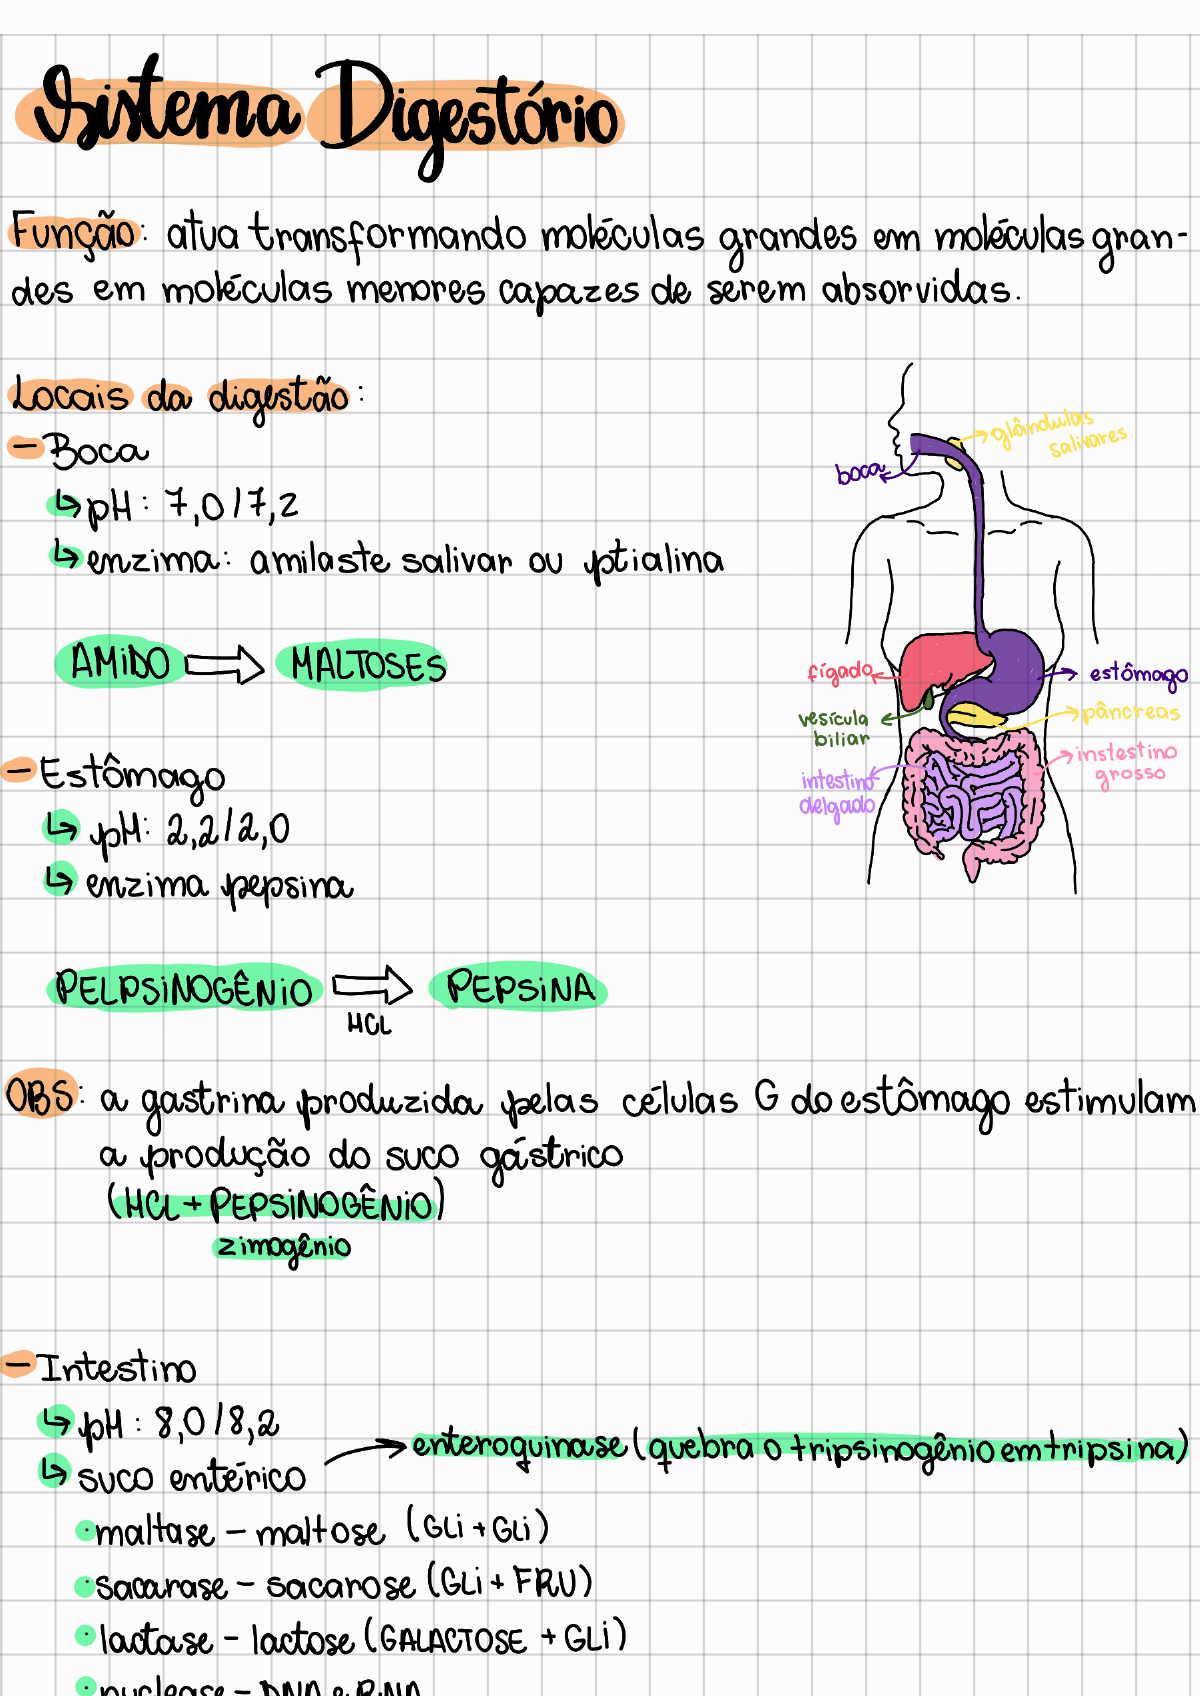 Sistema Digestório
Função: atua transformando moléculas grandes em moléculas gran-
des em moléculas menores capazes de serem absorvidas.
Locais da digestão:
- Boca
↳ pH: 7,0/7,2
↳ enzima: amilaste salivar ou ptialina
AMIDO ⇒ MALTOSES
glândulas
salivares
boca
fígado
estômago
vesícula
biliar
pâncreas
intestino
delgado
instestino
grosso
- Estômago
↳ pH: 2,2/2,0
↳ enzima pepsina
PELPSINOGÊNIO ⇒ PEPSINA
HCL
OBS: a gastrina produzida pelas células G do estômago estimulam
a produção do suco gástrico
(HCL + PEPSINOGÊNIO)
zimogênio
- Intestino
↳ pH: 8,0/8,2
↳ suco entérico → enteroquinase (quebra o tripsinogênio em tripsina)
· maltase - maltose (GLi + GLi)
· sacarase - sacarose (GLi + FRU)
· lactase - lactose (GALACTOSE + GLi)
· nuclease - DNA e RNA